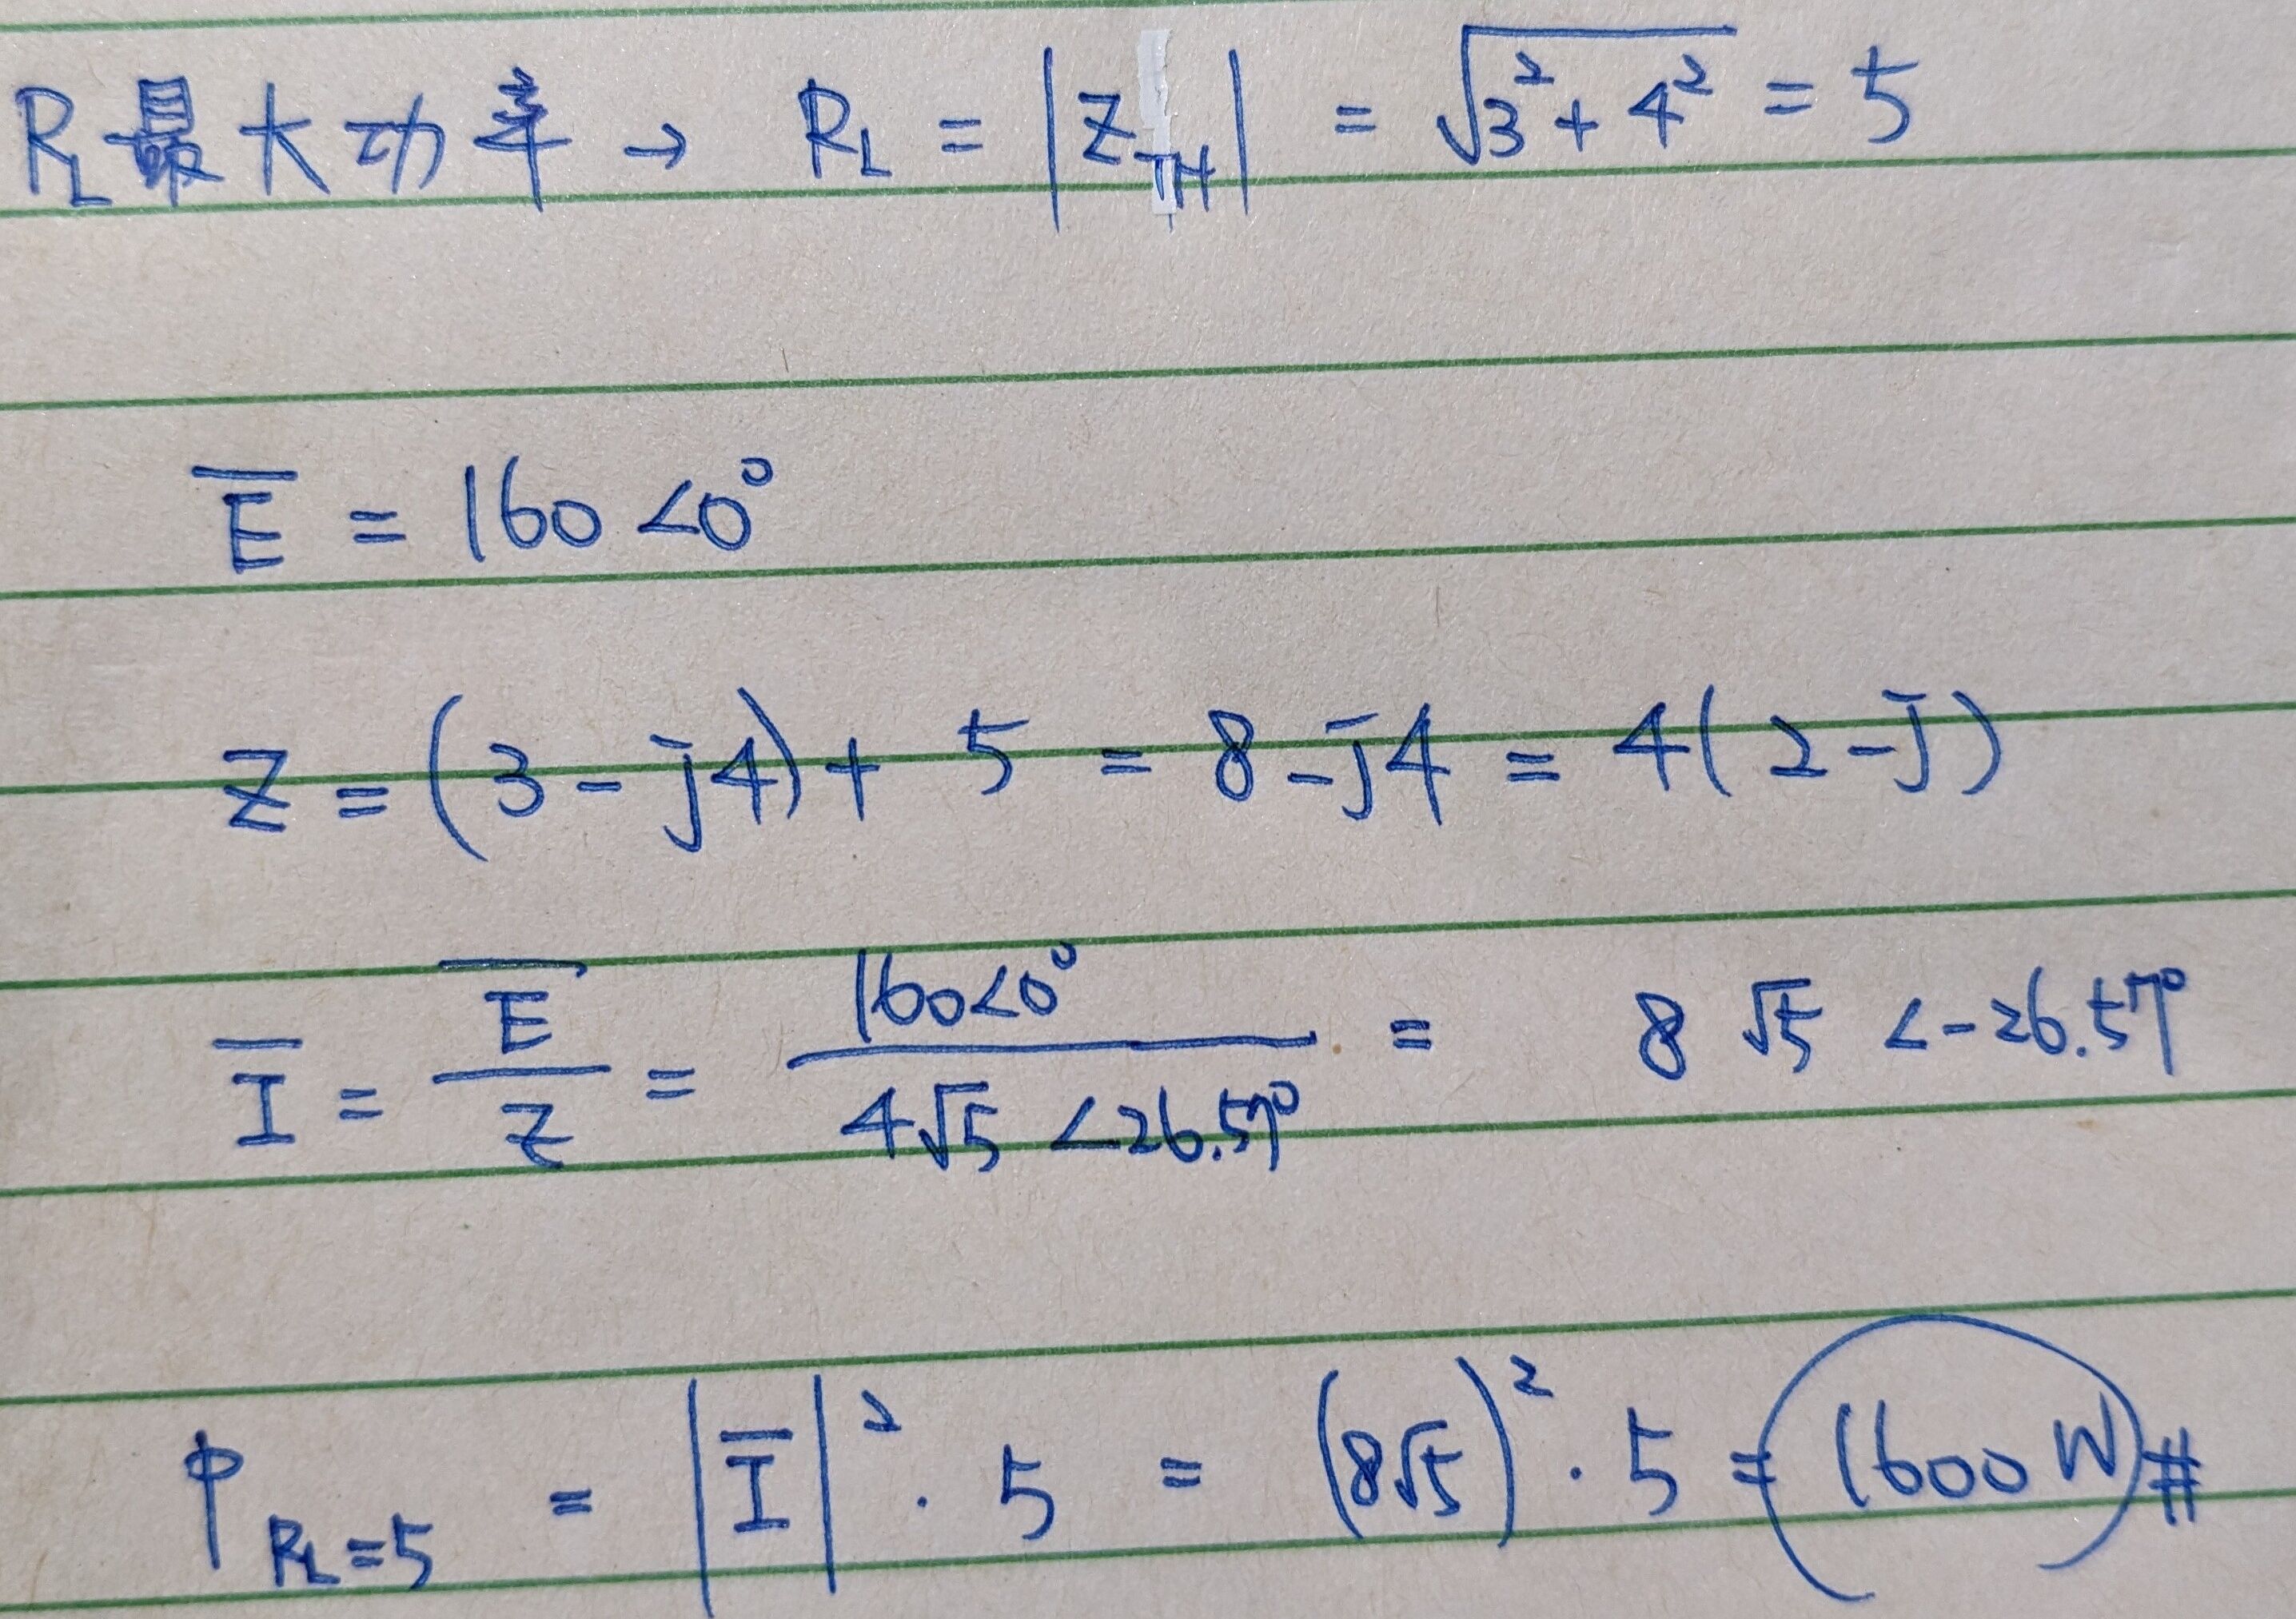 R_L 最大功率 → R_L = |Z_TH| = √(3² + 4²) = 5
E̅ = 160 ∠0°
Z = (3 - j4) + 5 = 8 - j4 = 4(2 - j)
I̅ = E̅/Z = 160∠0° / 4√5 ∠26.57° = 8√5 ∠-26.57°
P_{R_L=5} = |I̅|² · 5 = (8√5)² · 5 = 1600 W #